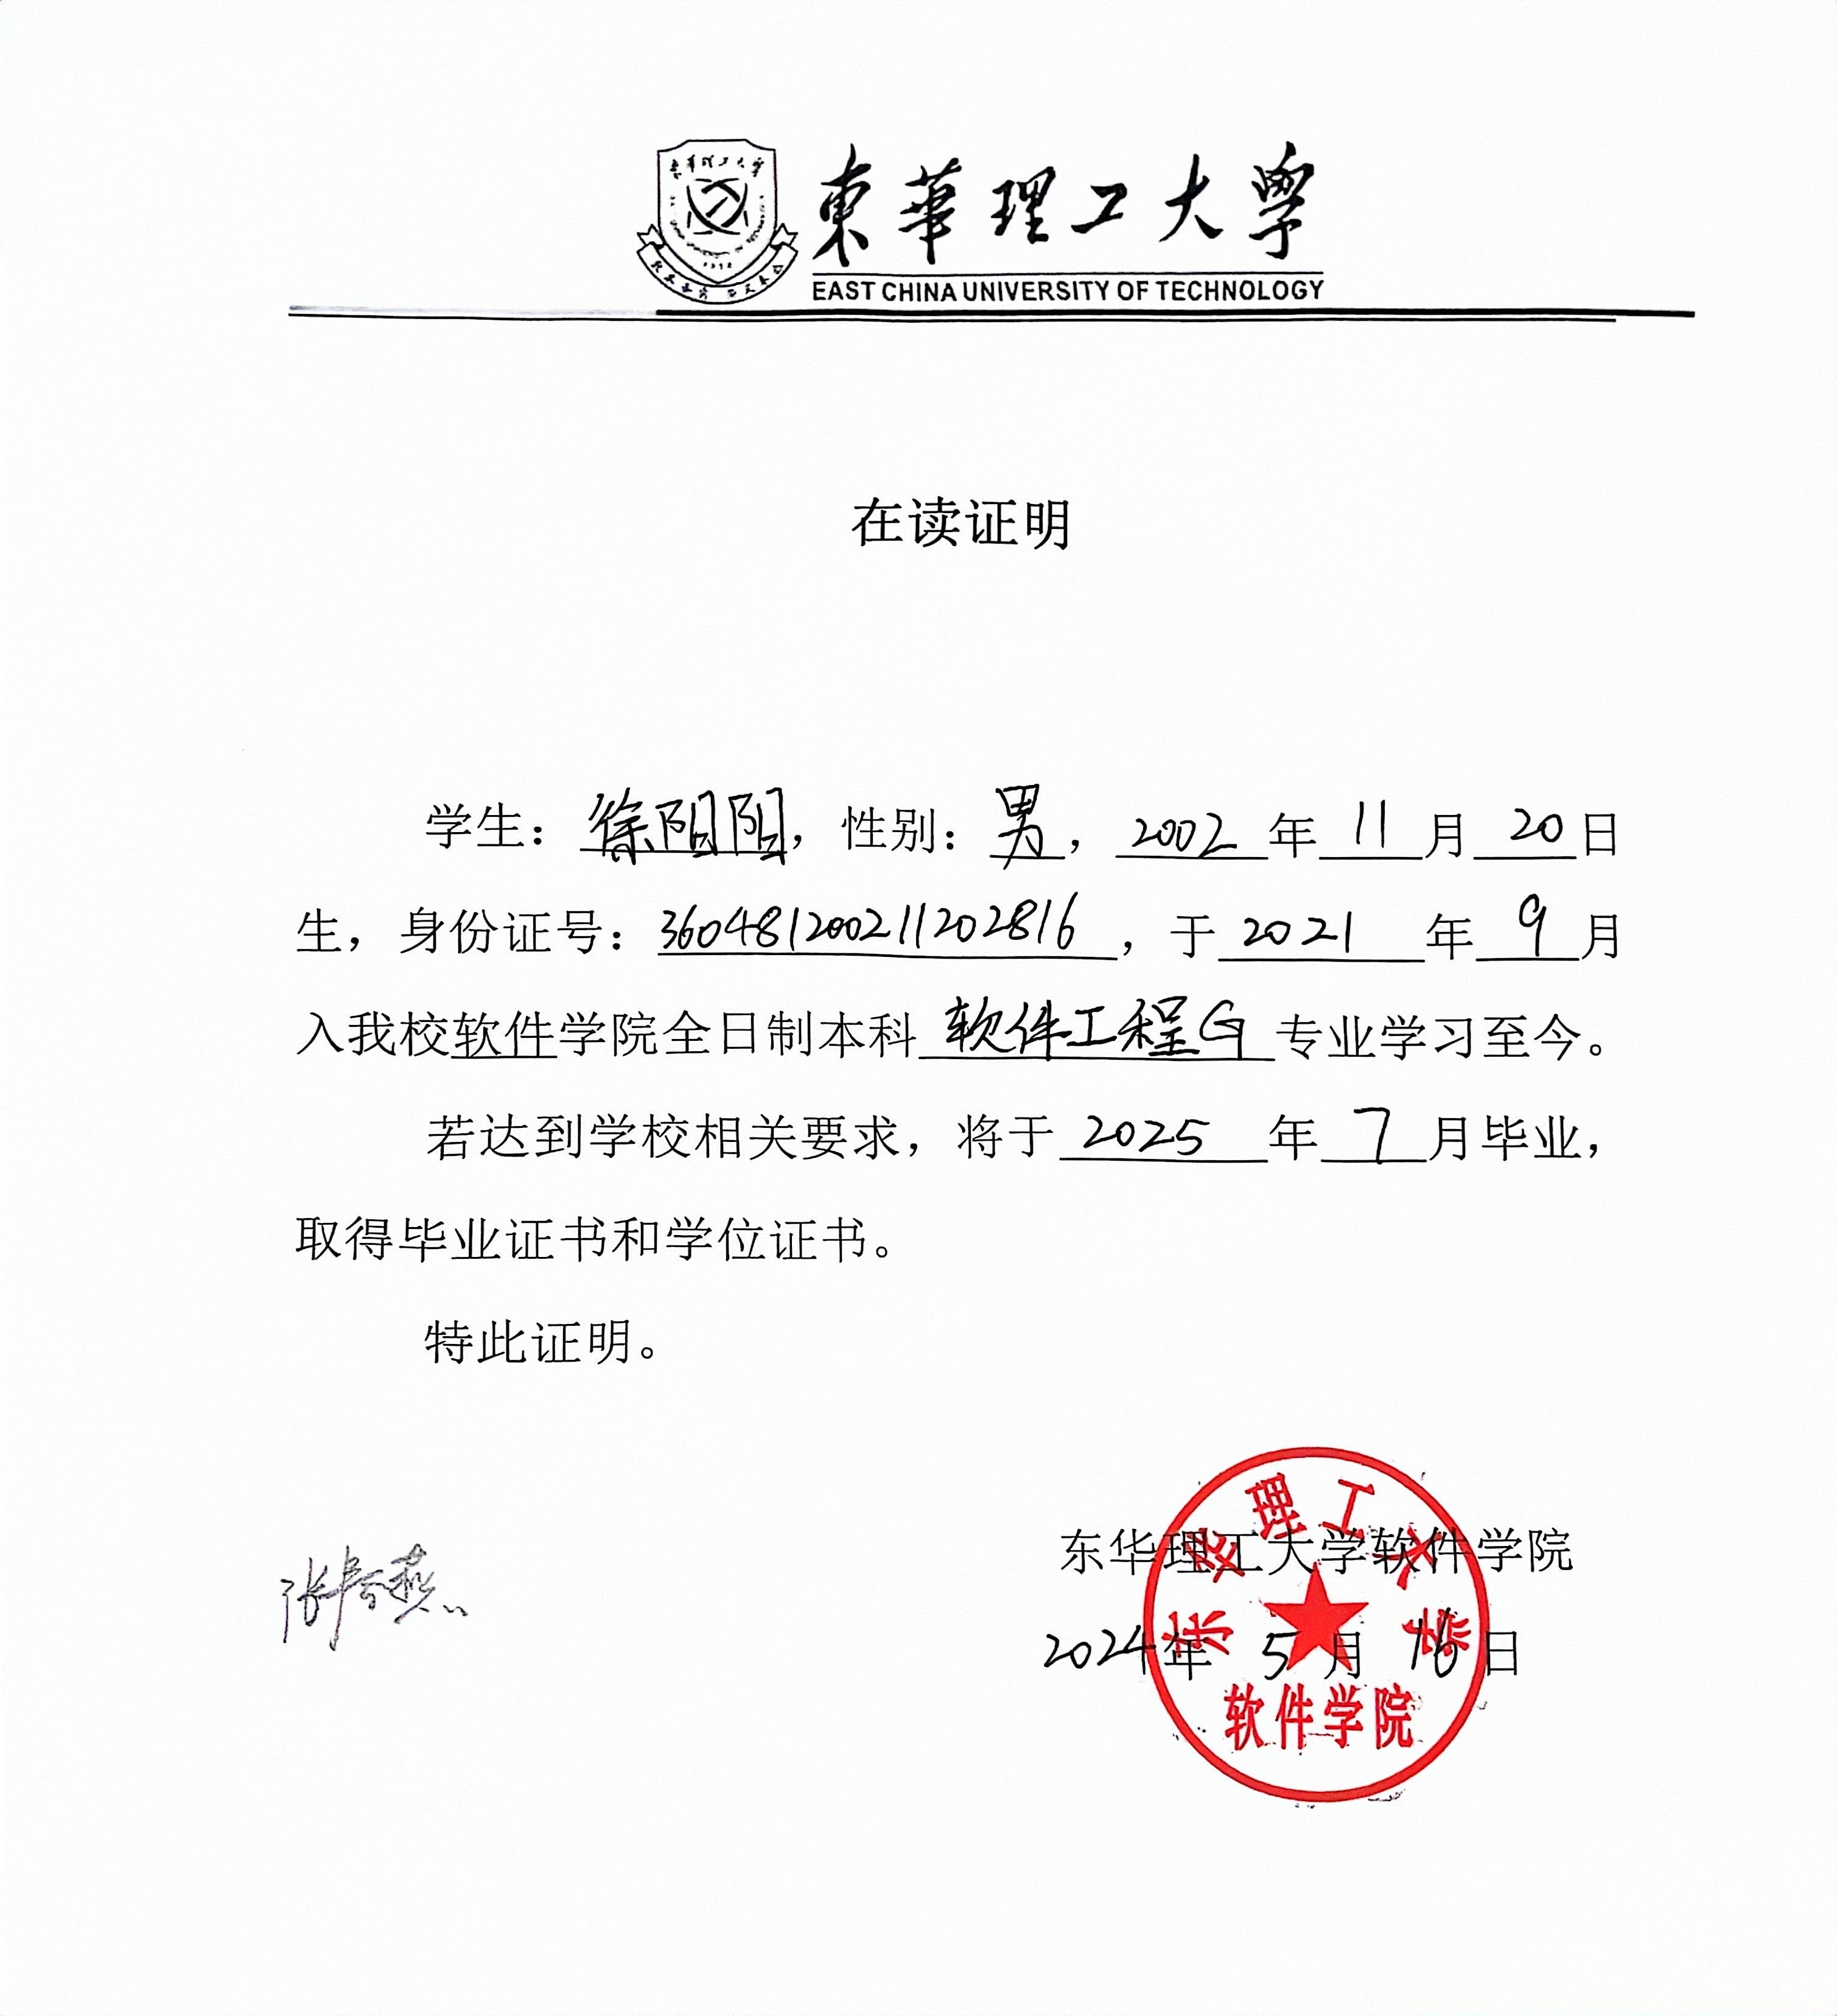 東華理工大學
EAST CHINA UNIVERSITY OF TECHNOLOGY
在读证明
学生：徐阳阳，性别：男，2002年11月20日
生，身份证号：360481200211202816，于2021年9月
入我校软件学院全日制本科软件工程G专业学习至今。
若达到学校相关要求，将于2025年7月毕业，
取得毕业证书和学位证书。
特此证明。
东华理工大学软件学院
2024年5月16日
东华理工大学
软件学院